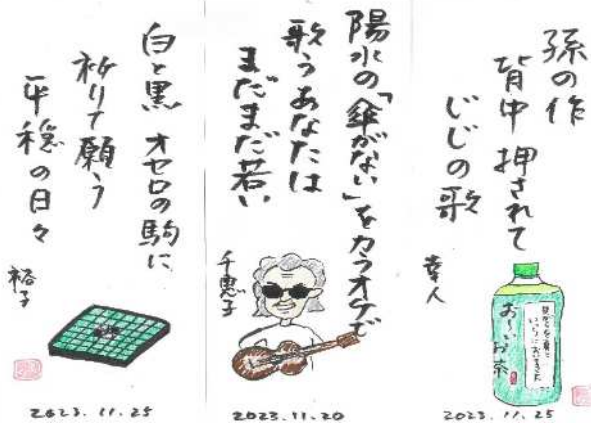 孫の作
背中押されて
じじの歌
幸人
お〜いお茶
2023.11.25
陽水の「傘がない」をカラオケで
歌うあなたは
まだまだ若い
千恵子
2023.11.20
白と黒 オセロの駒に
祈りて願う
平穏の日々
裕子
2023.11.25